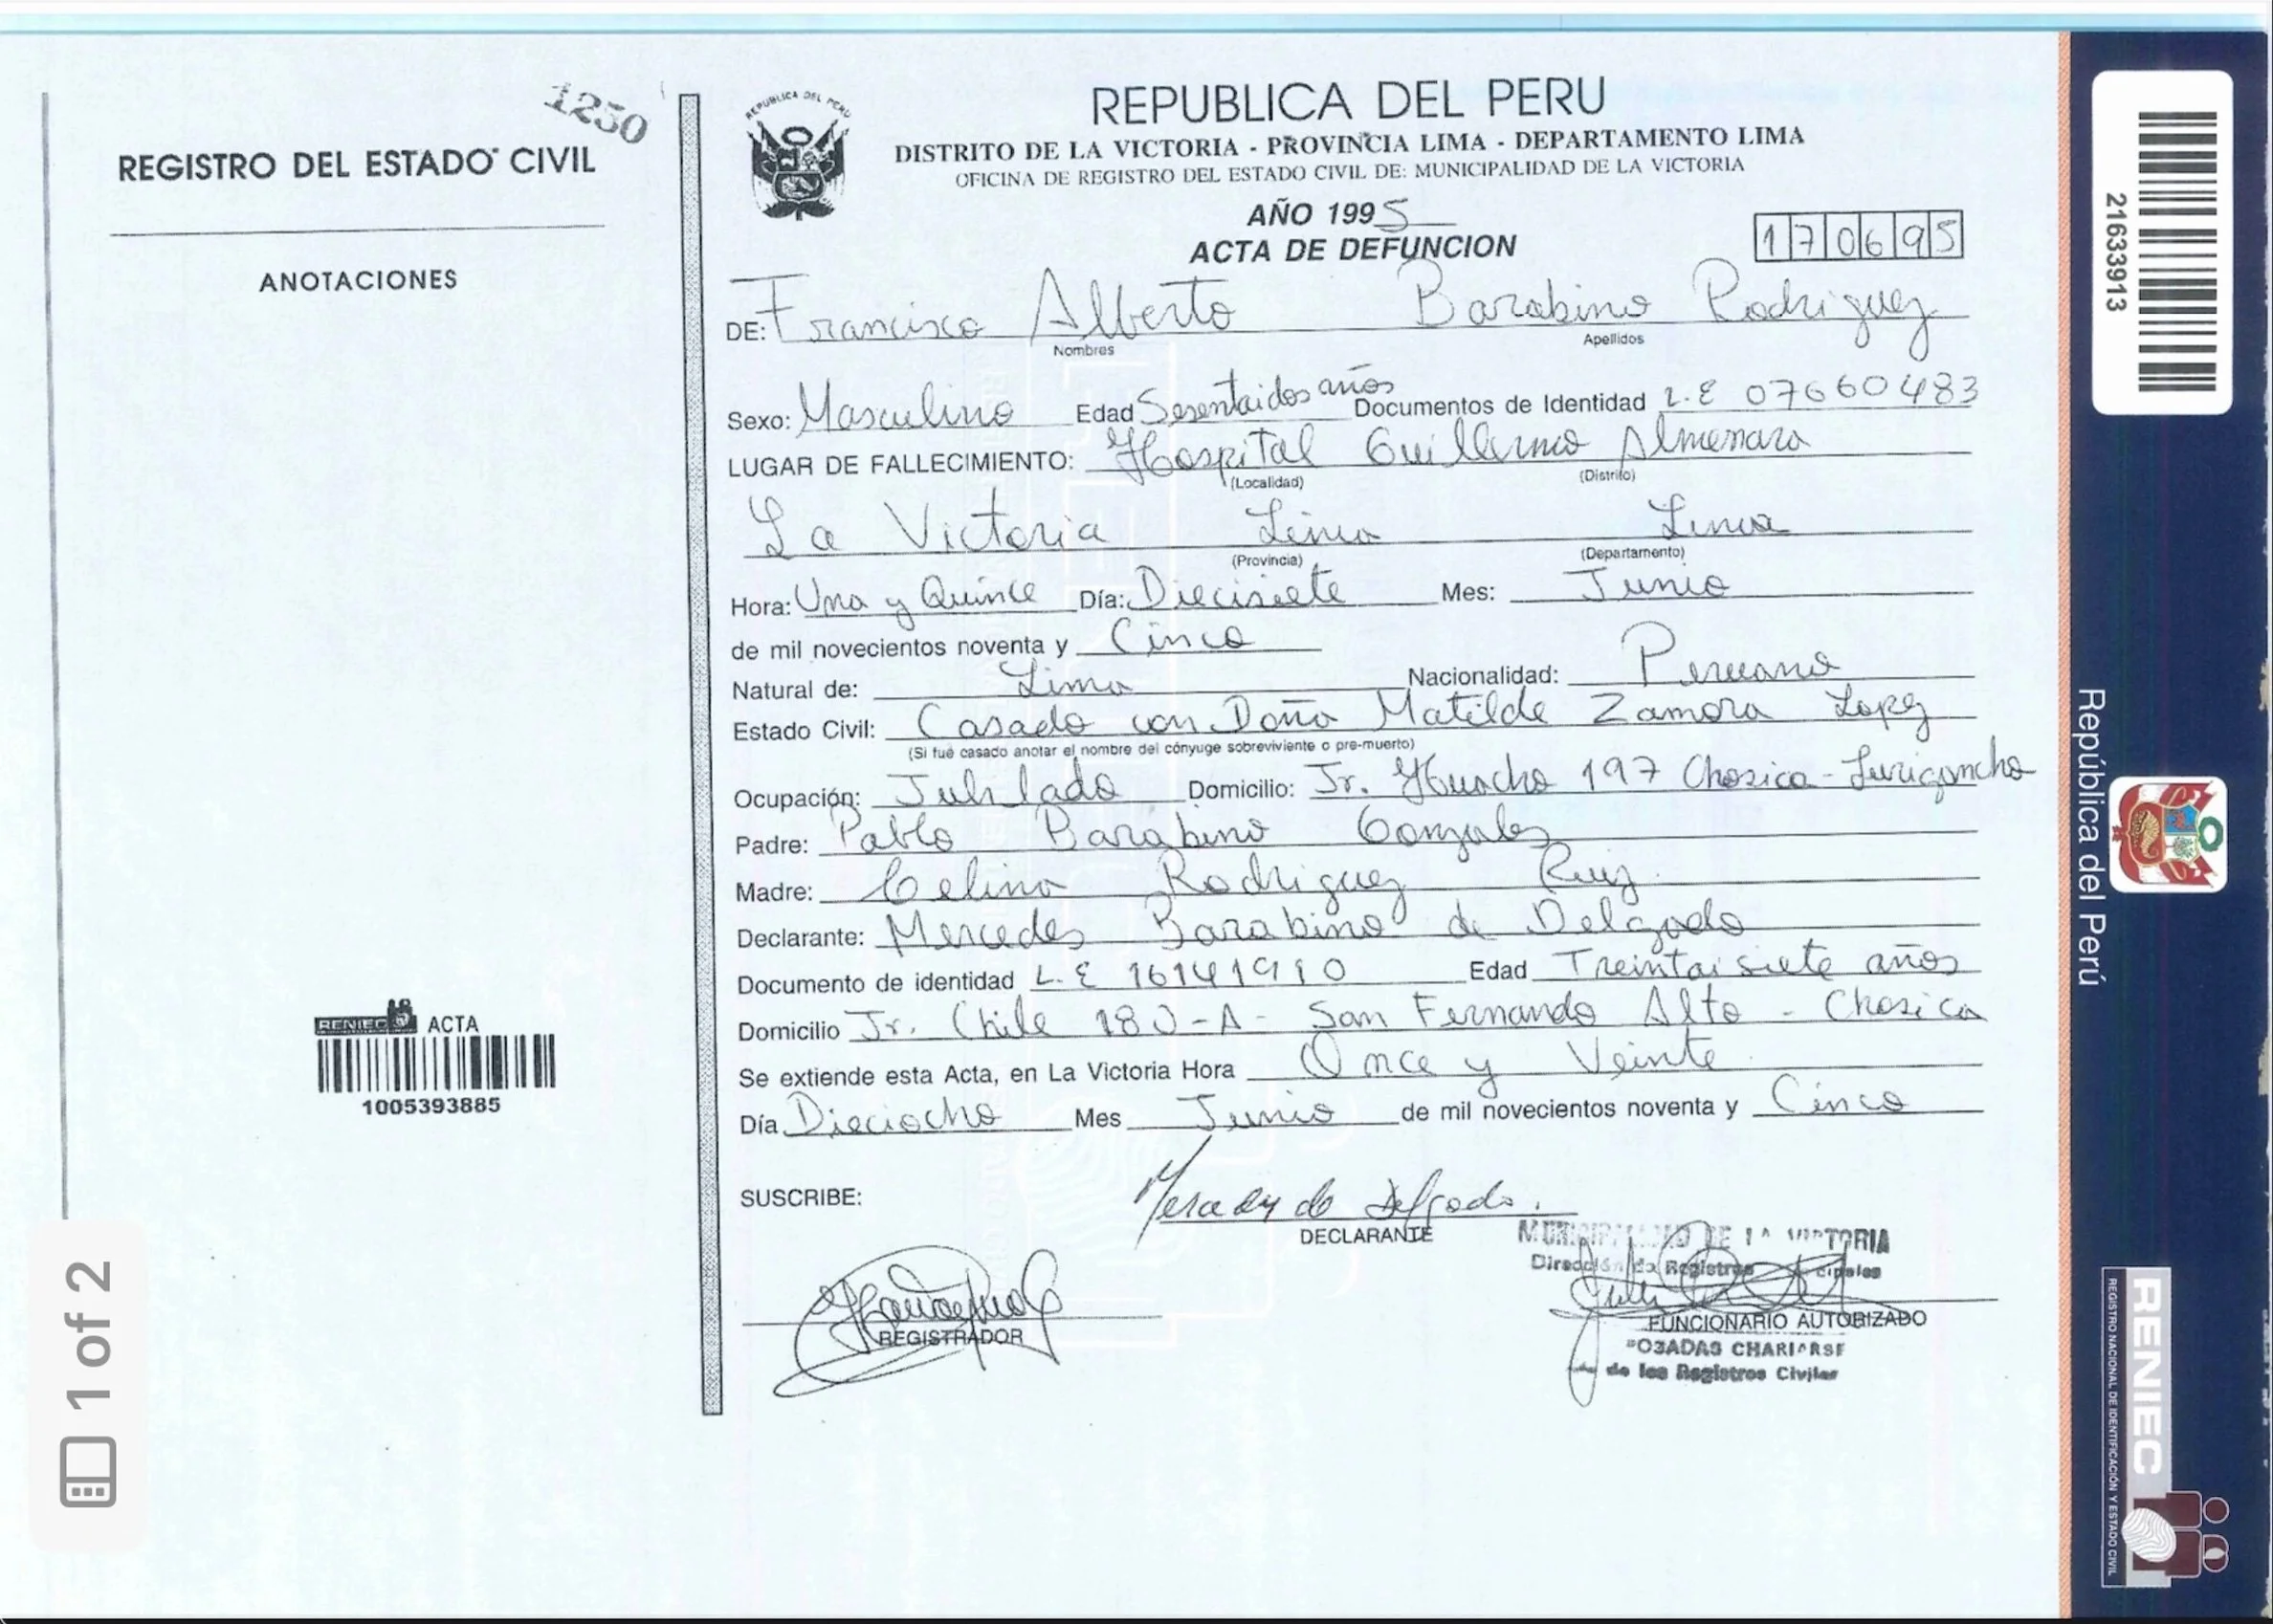 1250
REGISTRO DEL ESTADO CIVIL
ANOTACIONES
RENIEC ACTA
1005393885
REPUBLICA DEL PERU
REPUBLICA DEL PERU
DISTRITO DE LA VICTORIA - PROVINCIA LIMA - DEPARTAMENTO LIMA
OFICINA DE REGISTRO DEL ESTADO CIVIL DE: MUNICIPALIDAD DE LA VICTORIA
AÑO 1995
ACTA DE DEFUNCION
170695
DE: Francisco Alberto Barabino Rodriguez
Nombres Apellidos
Sexo: Masculino Edad Sesentaidos años Documentos de Identidad L.E 07660483
LUGAR DE FALLECIMIENTO: Hospital Guillermo Almenara
(Localidad) (Distrito)
La Victoria Lima Lima
(Provincia) (Departamento)
Hora: Una y Quince Día: Diecisiete Mes: Junio
de mil novecientos noventa y Cinco
Natural de: Lima Nacionalidad: Peruana
Estado Civil: Casado con Doña Matilde Zamora Lopez
(Si fué casado anotar el nombre del cónyuge sobreviviente o pre-muerto)
Ocupación: Jubilado Domicilio: Jr. Huacho 197 Chosica - Lurigancho
Padre: Pablo Barabino Gonzales
Madre: Celina Rodriguez Ruiz
Declarante: Mercedes Barabino de Delgado
Documento de identidad L.E 16141910 Edad Treintaisiete años
Domicilio Jr. Chile 180-A - San Fernando Alto - Chosica
Se extiende esta Acta, en La Victoria Hora Once y Veinte
Día Dieciocho Mes Junio de mil novecientos noventa y Cinco
SUSCRIBE:
Mercedes de Delgado.
DECLARANTE
MUNICIPALIDAD DE LA VICTORIA
Dirección de Registros
REGISTRADOR
FUNCIONARIO AUTORIZADO
de los Registros Civiles
21633913
República del Perú
RENIEC
REGISTRO NACIONAL DE IDENTIFICACIÓN Y ESTADO CIVIL
1 of 2